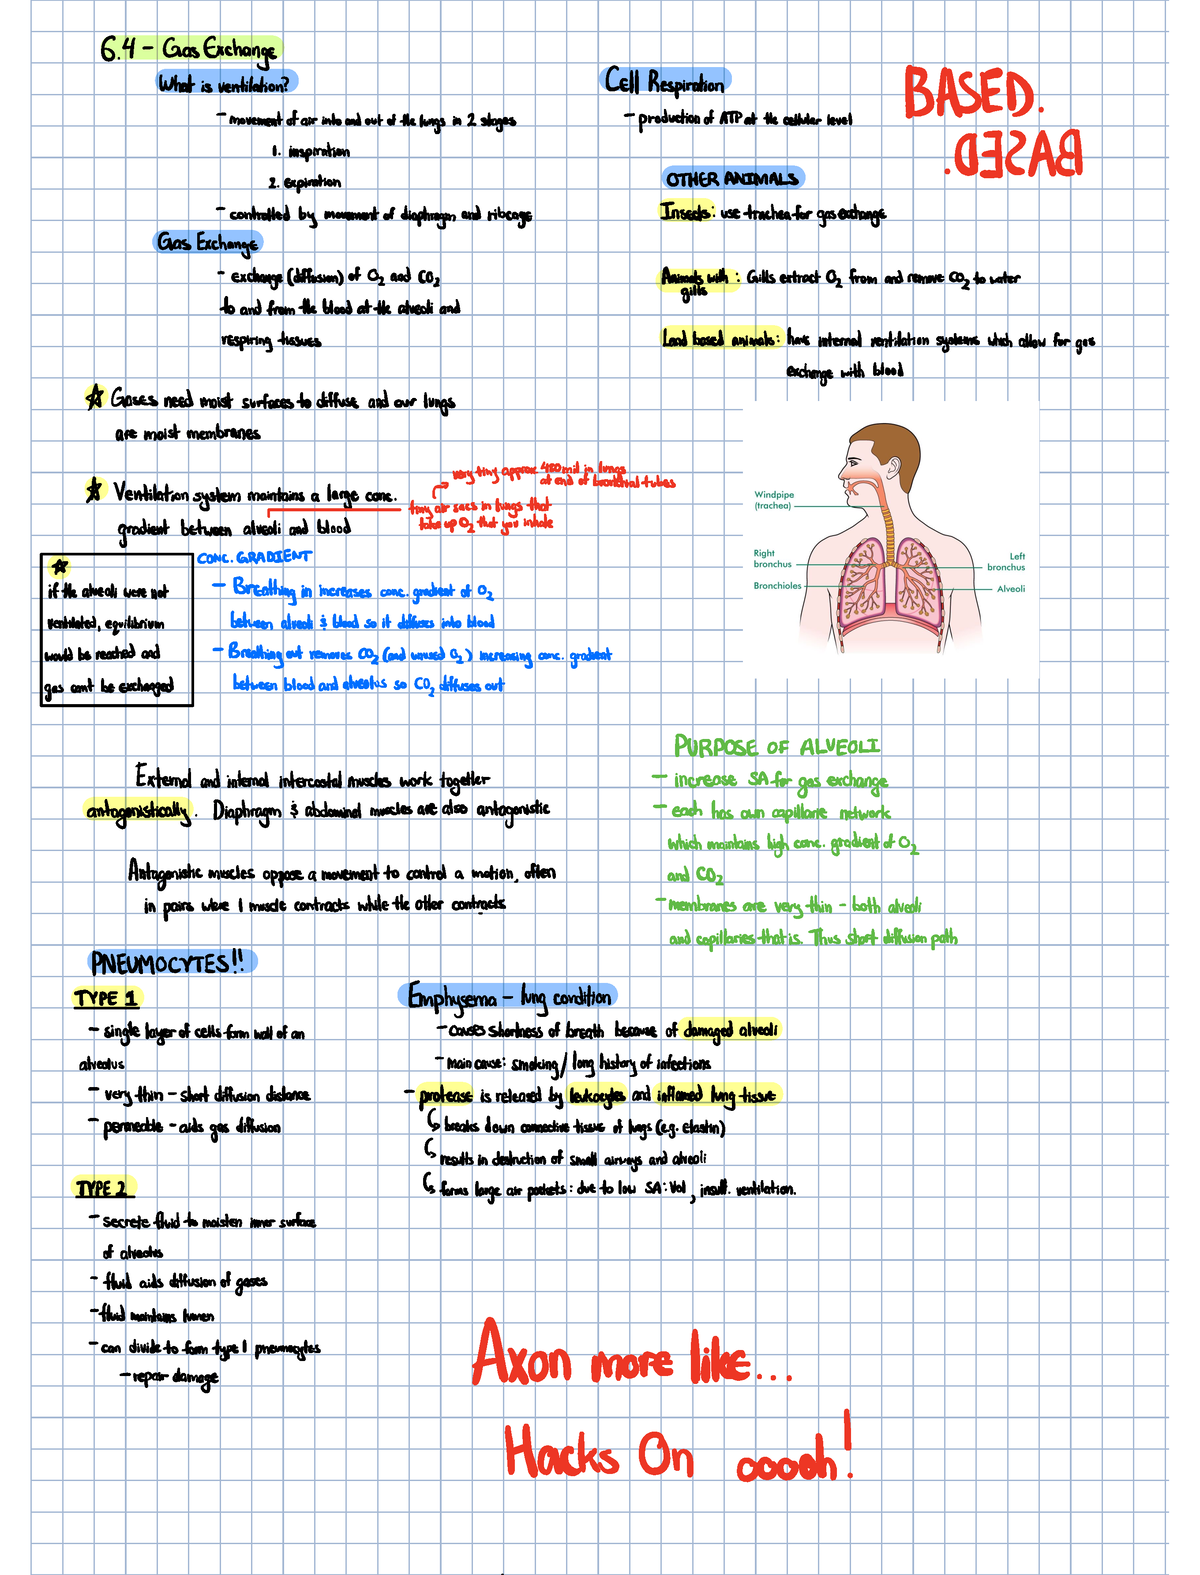 6.4 - Gas Exchange
What is ventilation?
- movement of air into and out of the lungs in 2 stages
1. inspiration
2. expiration
- controlled by movement of diaphragm and ribcage
Gas Exchange
- exchange (diffusion) of O₂ and CO₂
to and from the blood at the alveoli and
respiring tissues
☆ Gases need moist surfaces to diffuse and our lungs
are moist membranes
☆ Ventilation system maintains a large conc.
gradient between alveoli and blood
very tiny approx 480 mil in lungs
at end of bronchial tubes
tiny air sacs in lungs that
take up O₂ that you inhale
☆
if the alveoli were not
ventilated, equilibrium
would be reached and
gas cant be exchanged
CONC. GRADIENT
- Breathing in increases conc. gradient of O₂
between alveoli & blood so it diffuses into blood
- Breathing out removes CO₂ (and unused O₂) increasing conc. gradient
between blood and alveolus so CO₂ diffuses out
External and internal intercostal muscles work together
antagonistically. Diaphragm & abdominal muscles are also antagonistic
Antagonistic muscles oppose a movement to control a motion, often
in pairs were 1 muscle contracts while the other contracts
Cell Respiration
- production of ATP at the cellular level
BASED.
BASED.
OTHER ANIMALS
Insects: use trachea for gas exchange
Animals with : Gills extract O₂ from and remove CO₂ to water
gills
Land based animals: have internal ventilation systems which allow for gas
exchange with blood
Windpipe
(trachea)
Right
bronchus
Bronchioles
Left
bronchus
Alveoli
PURPOSE OF ALVEOLI
- increase SA for gas exchange
- each has own capillarie network
which maintains high conc. gradient of O₂
and CO₂
- membranes are very thin - both alveoli
and capillaries that is. Thus short diffusion path
PNEUMOCYTES!!
TYPE 1
- single layer of cells form wall of an
alveolus
- very thin - short diffusion distance
- permeable - aids gas diffusion
TYPE 2
- secrete fluid to moisten inner surface
of alveolus
- fluid aids diffusion of gases
- fluid maintains lumen
- can divide to form type 1 pneumocytes
- repair damage
Emphysema - lung condition
- causes shortness of breath because of damaged alveoli
- main cause: smoking / long history of infections
- protease is released by leukocytes and inflamed lung tissue
↳ breaks down connective tissue of lungs (e.g. elastin)
↳ results in destruction of small airways and alveoli
↳ forms large air pockets: due to low SA:Vol, insuff. ventilation.
Axon more like...
Hacks On ooooh!